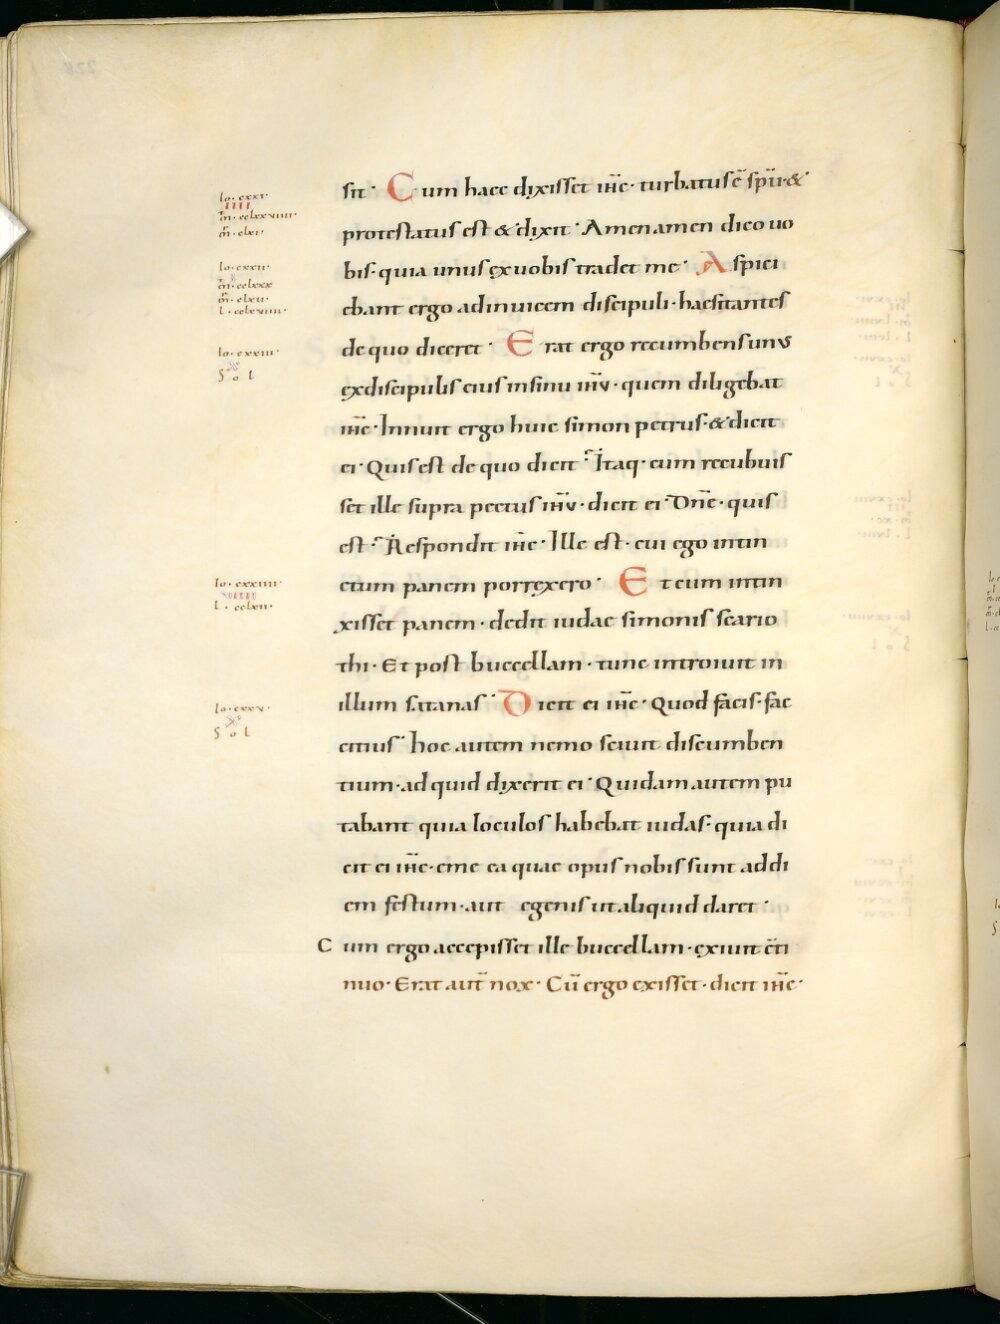 sit· Cum haec dixisset ih̅c· turbatus ē sp̅u· &
protestatus est & dixit· Amen amen dico uo
bis· quia unus ex uobis tradet me· Aspici
ebant ergo adinuicem discipuli· haesitantes
de quo diceret· Erat ergo recumbens unus
ex discipulis eius in sinu ih̅u· quem diligebat
ih̅c· Innuit ergo huic simon petrus· & dicit
ei· Quis est de quo dicit· Itaq· cum recubuis
set ille supra pectus ih̅u· dicit ei· Dn̅e· quis
est· Respondit ih̅c· Ille est· cui ego intin
ctum panem porrexero· Et cum intin
xisset panem· dedit iudae simonis scario
thi· Et post buccellam· tunc introiuit in
illum satanas· Dicit ei ih̅c· Quod facis· fac
citius· hoc autem nemo sciuit discumben
tium· ad quid dixerit ei· Quidam autem pu
tabant quia loculos habebat iudas· quia di
cit ei ih̅c· eme ea quae opus nobis sunt ad di
em festum· aut egenis ut aliquid daret·
Cum ergo accepisset ille buccellam· exiuit c̅ti
nuo· Erat aut̅ nox· Cu̅ ergo exisset· dicit ih̅c·
Io· cxxi·
IIII
m̅· cclxxviiii·
m̅· clxi·
Io· cxxii·
m̅· cclxx
m̅· clxii·
L· cclxviiii·
Io· cxxiii·
X
Sol
Io· cxxiiii·
L· cclxii·
Io· cxxv·
X
Sol